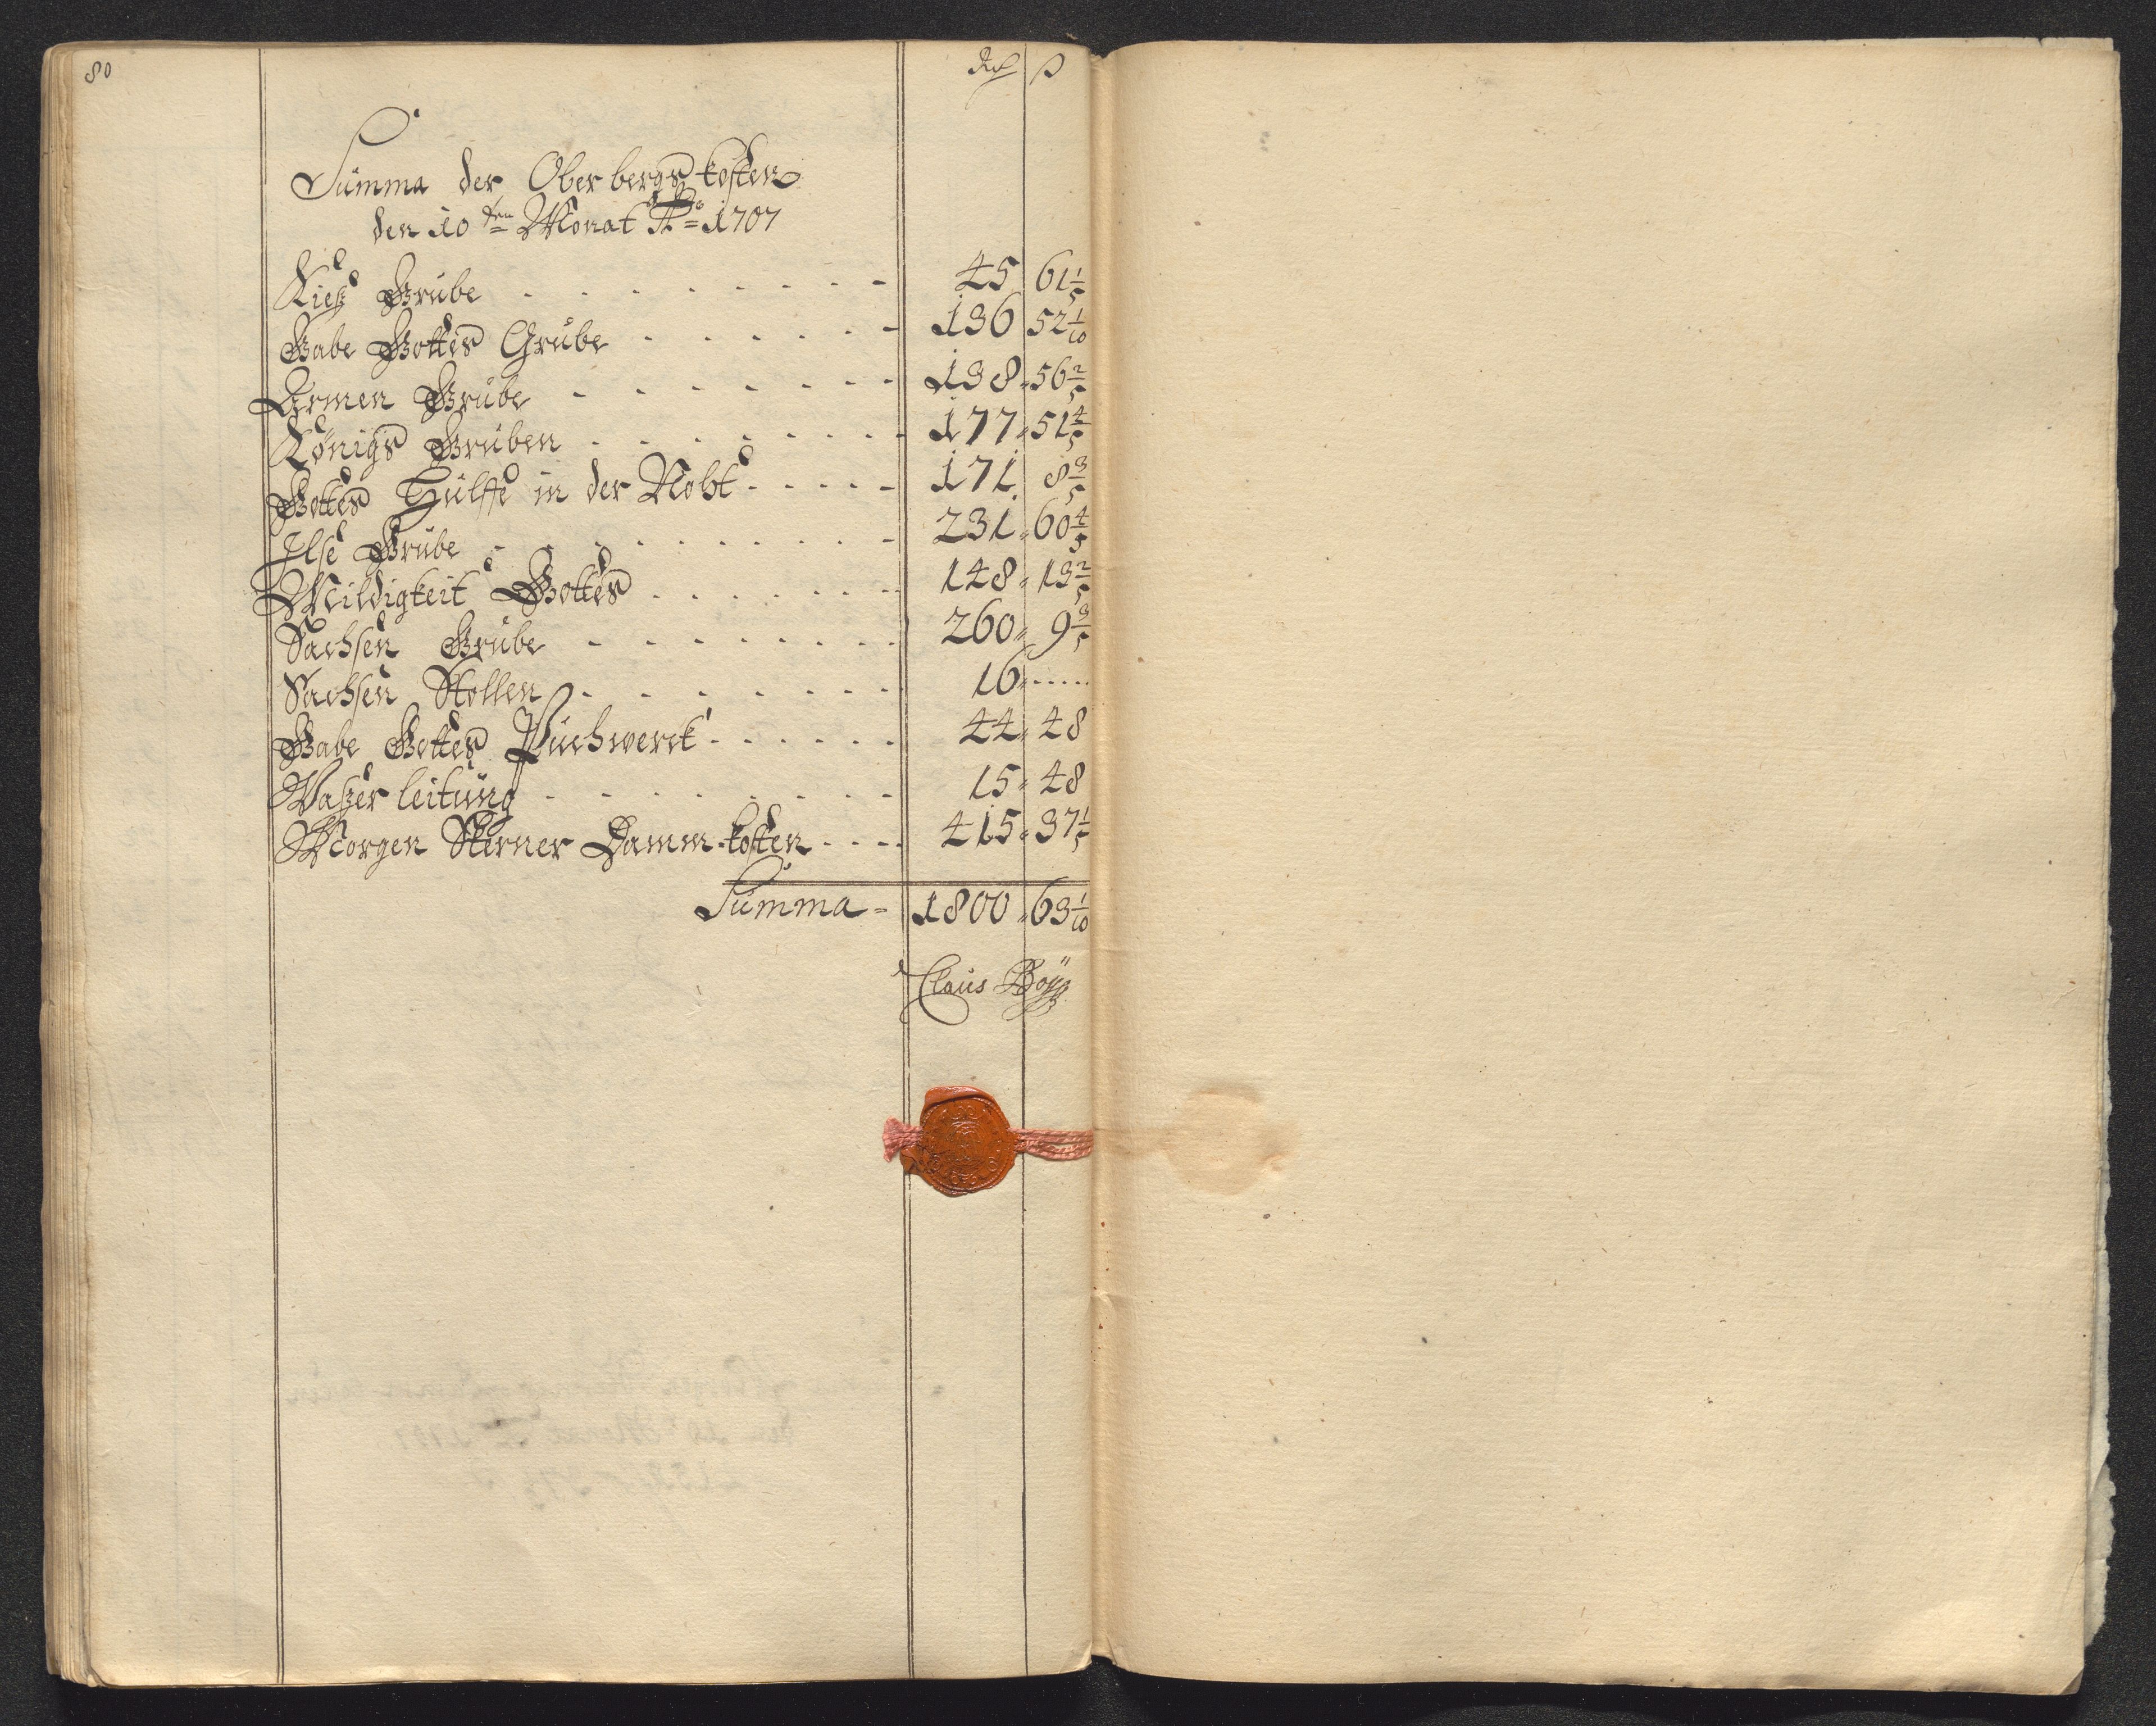 80
Rdl ß
Summa der Oberbergs kosten
den 10 ten Monat Ao 1707
Kieß Grube - - - - - - - 45 61 1/5
Gabe Gottes Grube - - - - - 136 52 1/10
Armen Grube - - - - - - - 138 56 2/5
Königs Gruben - - - - - - - 177 51 4/5
Gottes Hülffe in der Nobt - - - - - 171 8 3/5
Ilse Grube - - - - - - - - 231 60 4/5
Mildigkeit Gottes - - - - - - 148 13 2/5
Sachsen Grube - - - - - - - 260 9 3/5
Sachsen Stollen - - - - - - - 16 .....
Gabe Gottes Puchwerck - - - - - - 44 48
Waßer leitung - - - - - - - 15 48
Morgen Sterner Damm-kosten - - - - 415 37 1/5
Summa - 1800 63 1/10
Claus Boÿß